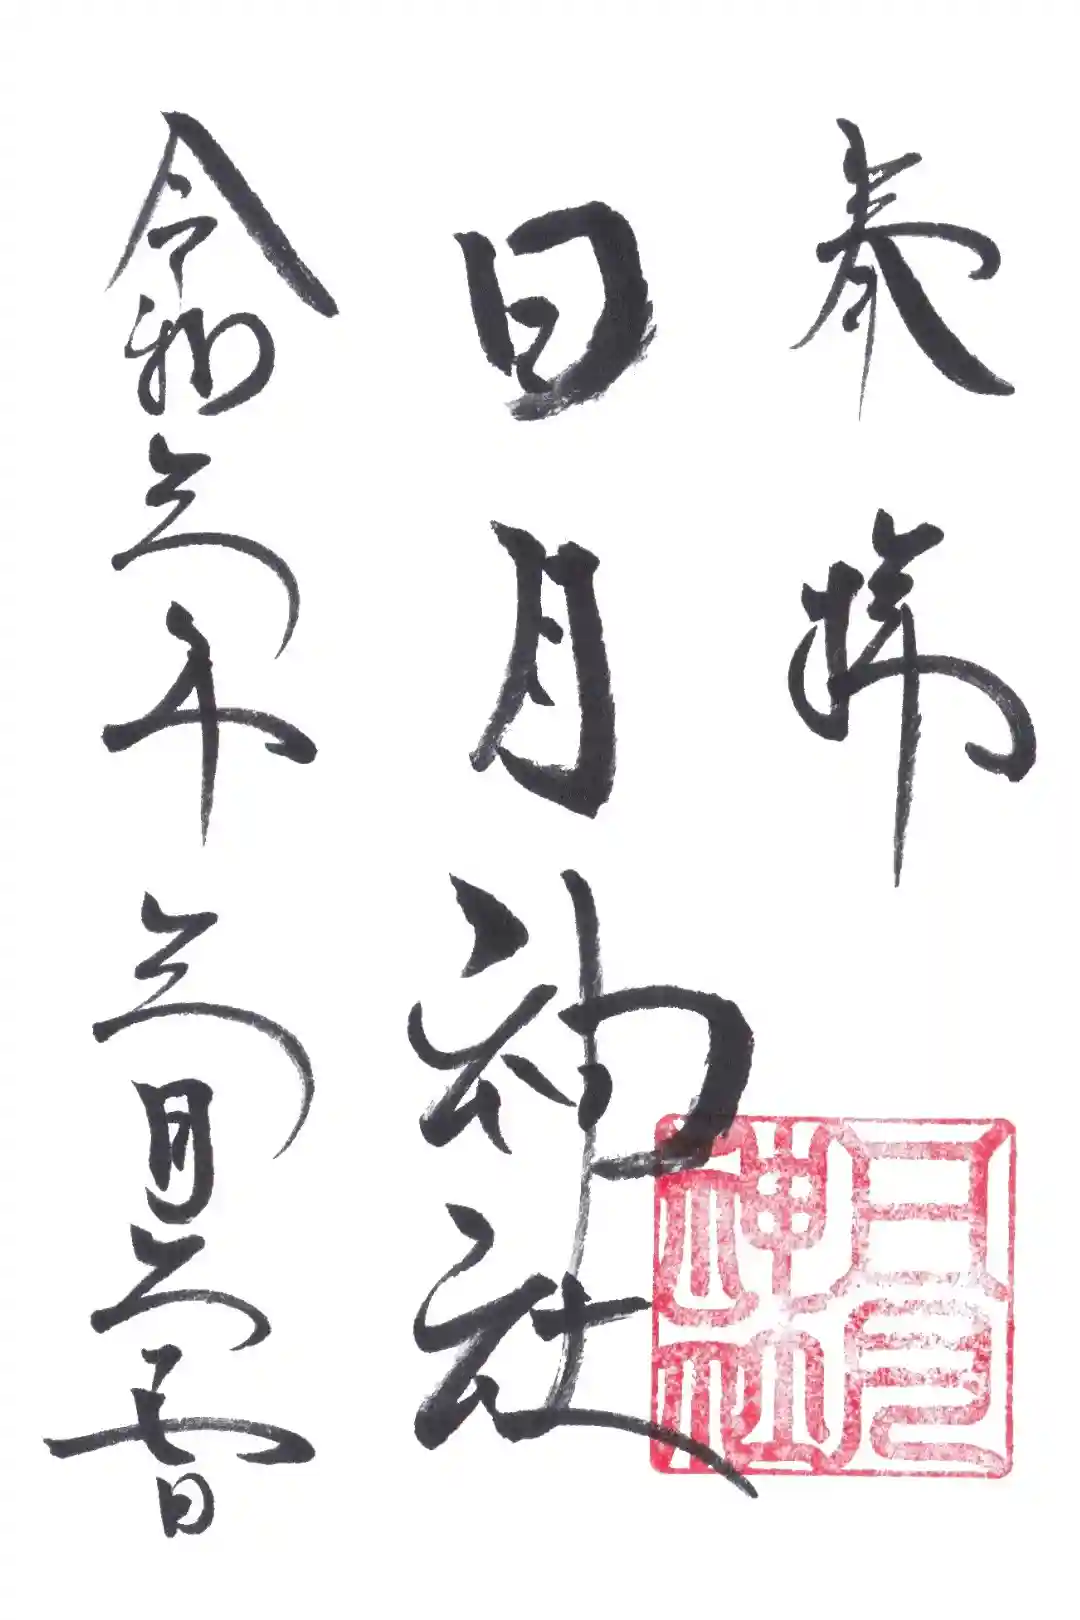 奉拝
日月神社
令和三年三月二日
日月神社